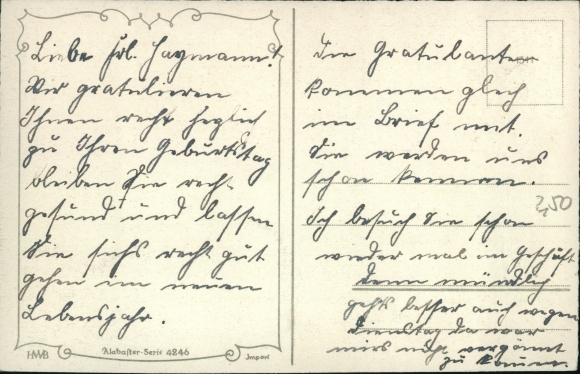 Liebe Frl. Haymann!
Wir gratulieren
Ihnen recht herzlich
zu Ihrem Geburtstag
bleiben Sie recht
gesund und lassen
Sie sichs recht gut
gehen im neuen
Lebensjahr.
HWB
Alabaster-Serie 4246
Import
Die Gratulanten
kommen gleich
im Brief mit.
Sie werden uns
schon kennen.
2,50
Ich besuch Sie schon
wieder mal im Geschäft
denn mündlich
gehts besser auch wegen
Dienstag da war
mirs nicht vergönnt
zu kommen.